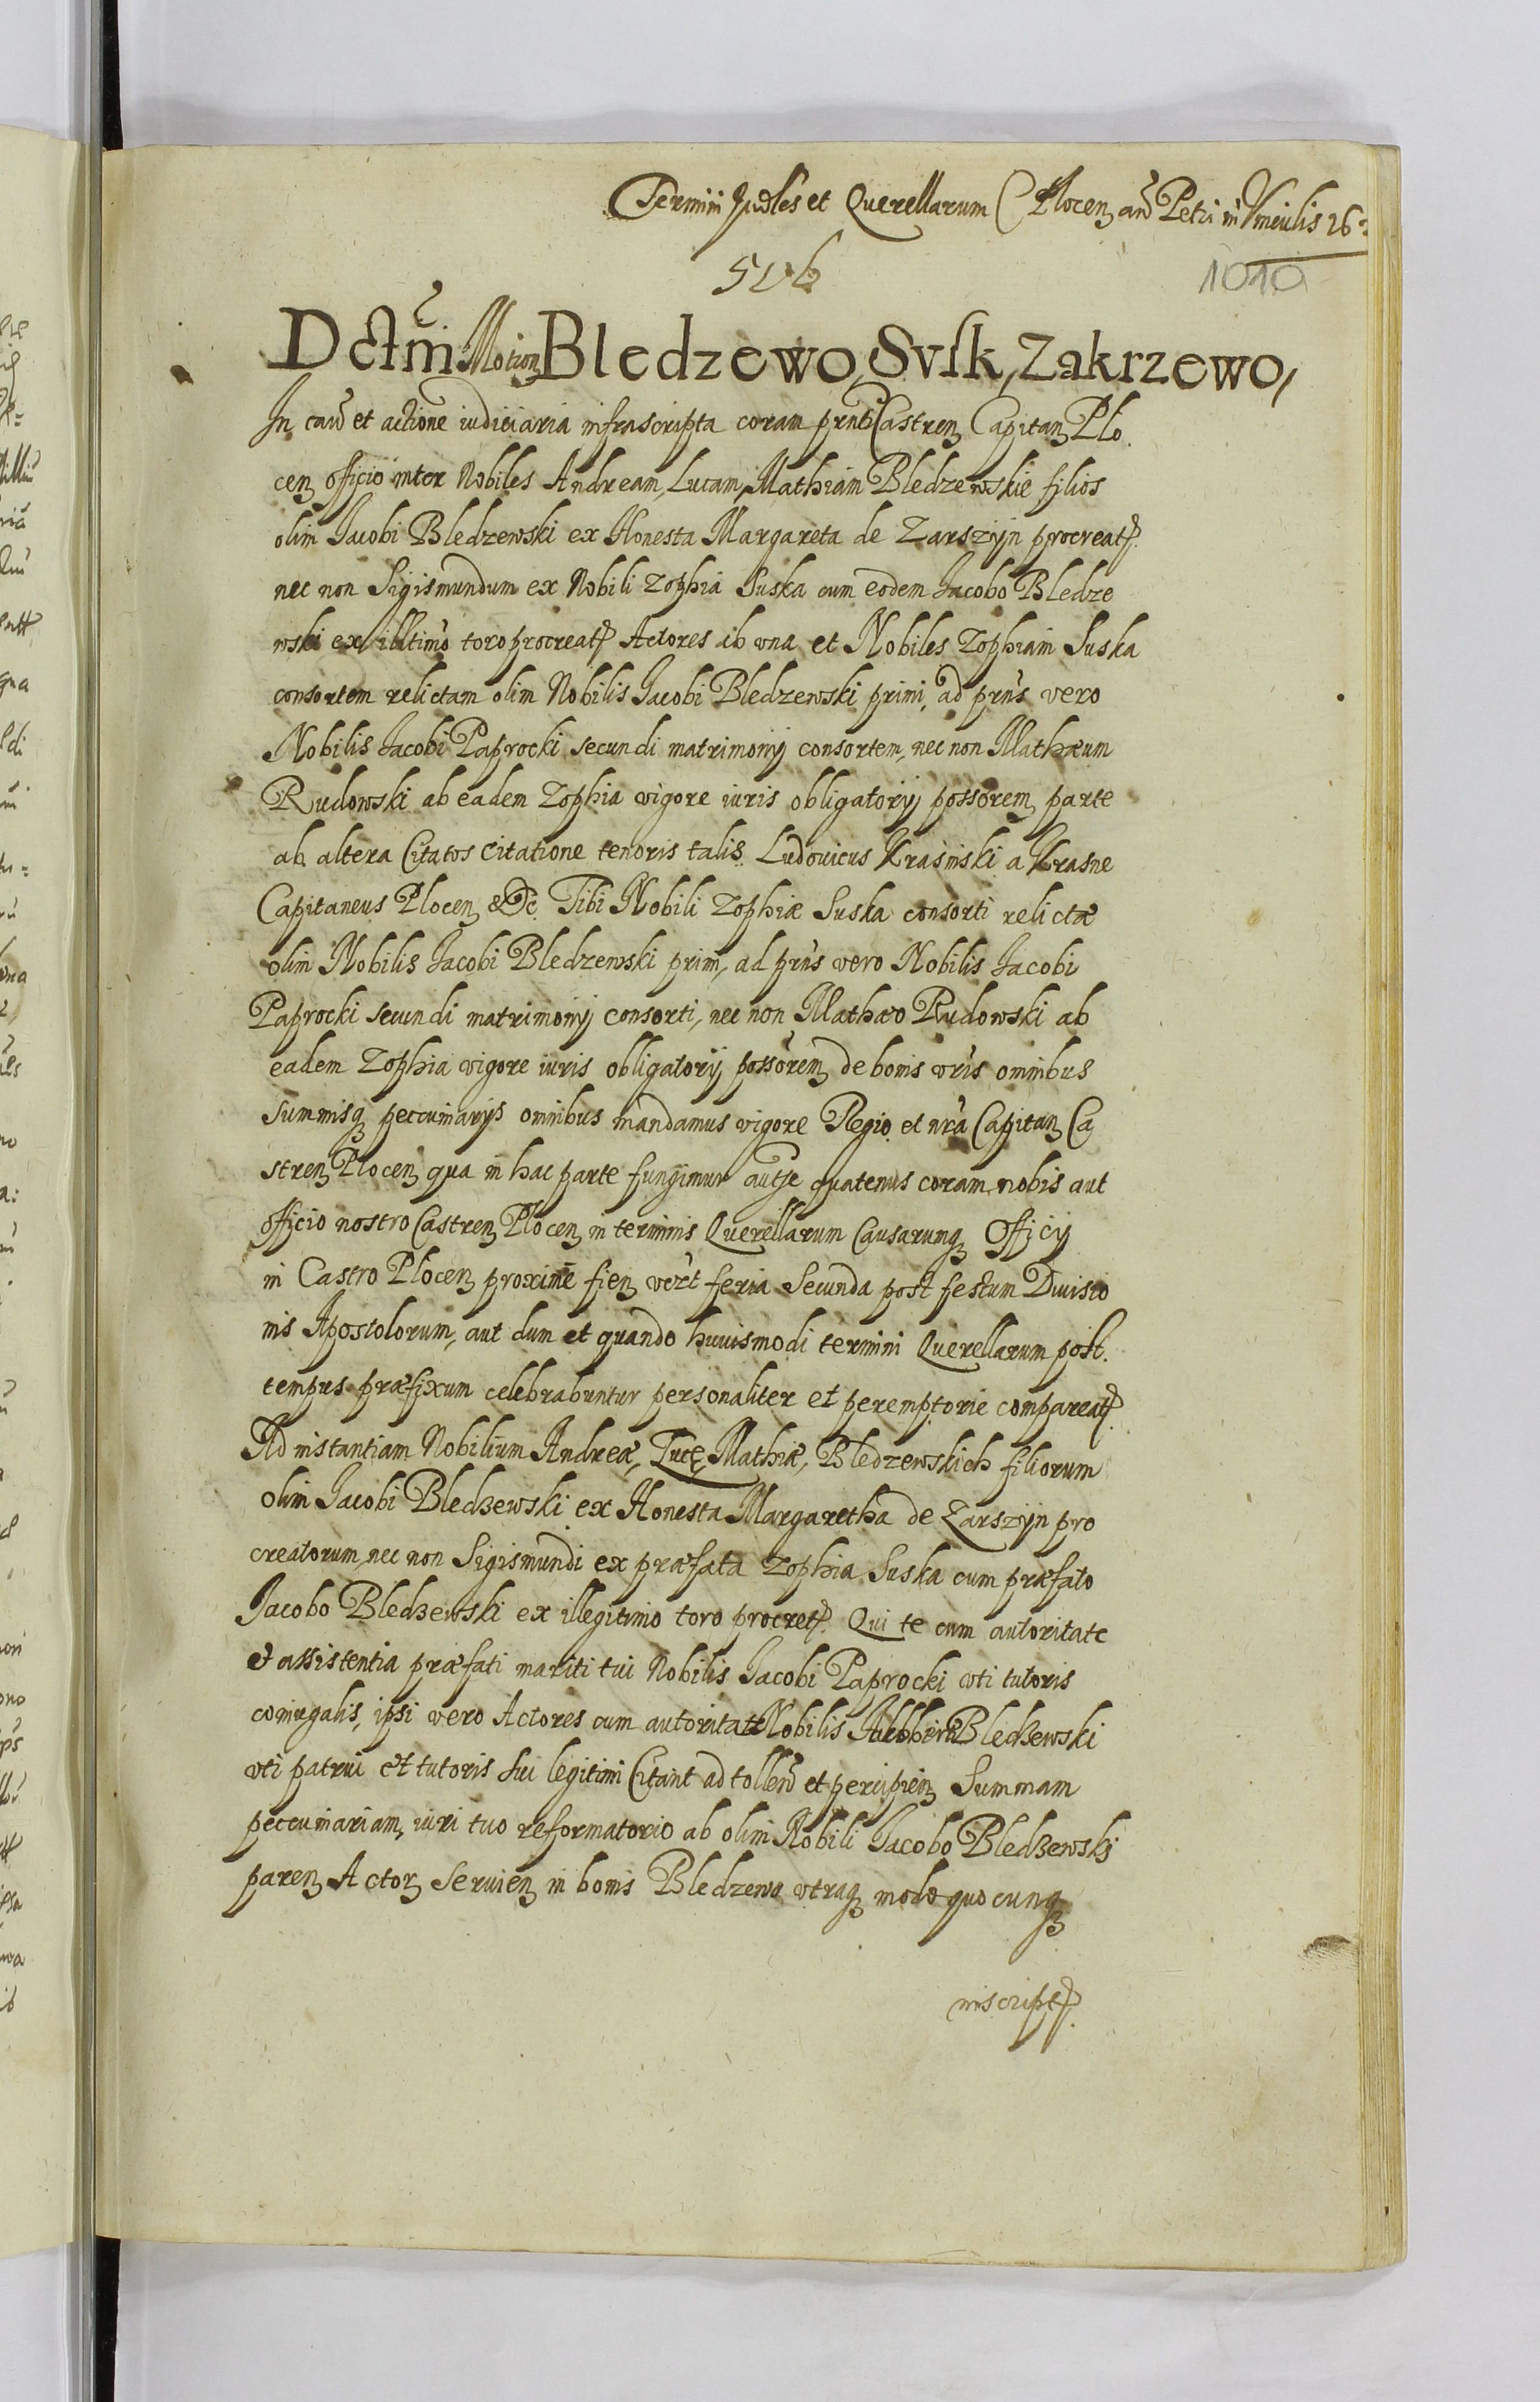 Termini Judles et Querellarum Plocen an Petri in Vinculis 16
506
1010
Dctm Motion Bledzewo, Susk, Zakrzewo,
In cau et actione iudiciaria infrascripta coram prnti Castren Capitan Plo
cen officio inter Nobiles Andream, Lucam, Mathiam Bledzewskie filios
olim Jacobi Bledzewski ex Honesta Margareta de Zarszijn procreat.
nec non Sigismundum ex Nobili Zophia Suska cum eodem Jacobo Bledze
wski ex illtimo toro procreat Actores ab vna et Nobiles Zophiam Suska
consortem relictam olim Nobilis Jacobi Bledzewski primi, ad prns vero
Nobilis Jacobi Paprocki secundi matrimonij consortem, nec non Mathæum
Rudowski ab eadem Zophia vigore iuris obligatorij possorem parte
ab altera Citatos Citatione tenoris talis. Ludouicus Krasinski a Krasne
Capitaneus Plocen &c. Tibi Nobili Zophiæ Suska consorti relictæ
olim Nobilis Jacobi Bledzewski primi, ad prns vero Nobilis Jacobi
Paprocki secundi matrimonij consorti, nec non Mathæo Rudowski ab
eadem Zophia vigore iuris obligatorij possorem de bonis vris omnibus
summisq peccuniarijs omnibus mandamus vigore Regio et nra Capitan Ca
stren Plocen qua in hac parte fungimur autte quatenus coram nobis aut
officio nostro Castren Plocen in terminis Querellarum Causarumq Officij
in Castro Plocen proxime fien vezt feria Secunda post festum Diuisio
nis Apostolorum, aut dum et quando huiusmodi termini Querellarum post
tempus præfixum celebrabuntur personaliter et peremptorie compareat
Ad instantiam Nobilium Andreæ, Lucę, Mathiæ, Bledzewskich filiorum
olim Jacobi Bledzewski ex Honesta Margaretha de Zarszijn pro
creatorum, nec non Sigismundi ex præfata Zophia Suska cum præfato
Jacobo Bledzewski ex illegitimo toro procret. Qui te cum autoritate
et assistentia præfati mariti tui Nobilis Jacobi Paprocki vti tutoris
coniugalis, ipsi vero Actores cum autoritate Nobilis Bledzewski
vti patrui et tutoris sui legitimi Citant ad tollend et percipien Summam
peccuniariam, iuri tuo reformatorio ab olim Nobili Jacobo Bledzewski
paren Actor seruien in bonis Bledzewo vtraq modo quocunq
inscript